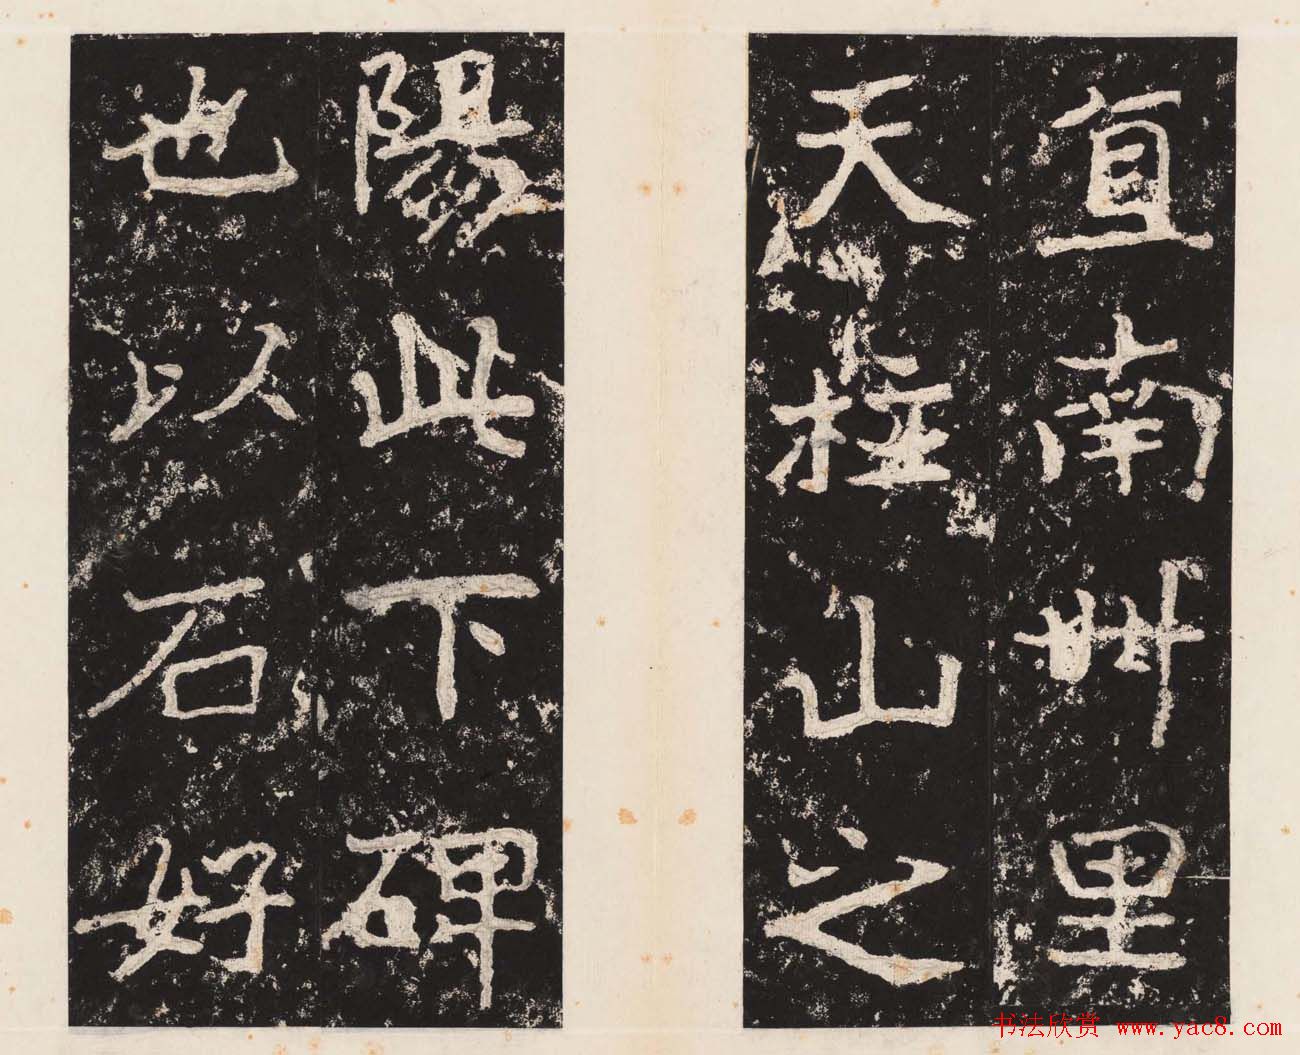 直南卌里
天柱山之
陽此下碑
也以石好
书法欣赏 www.yac8.com